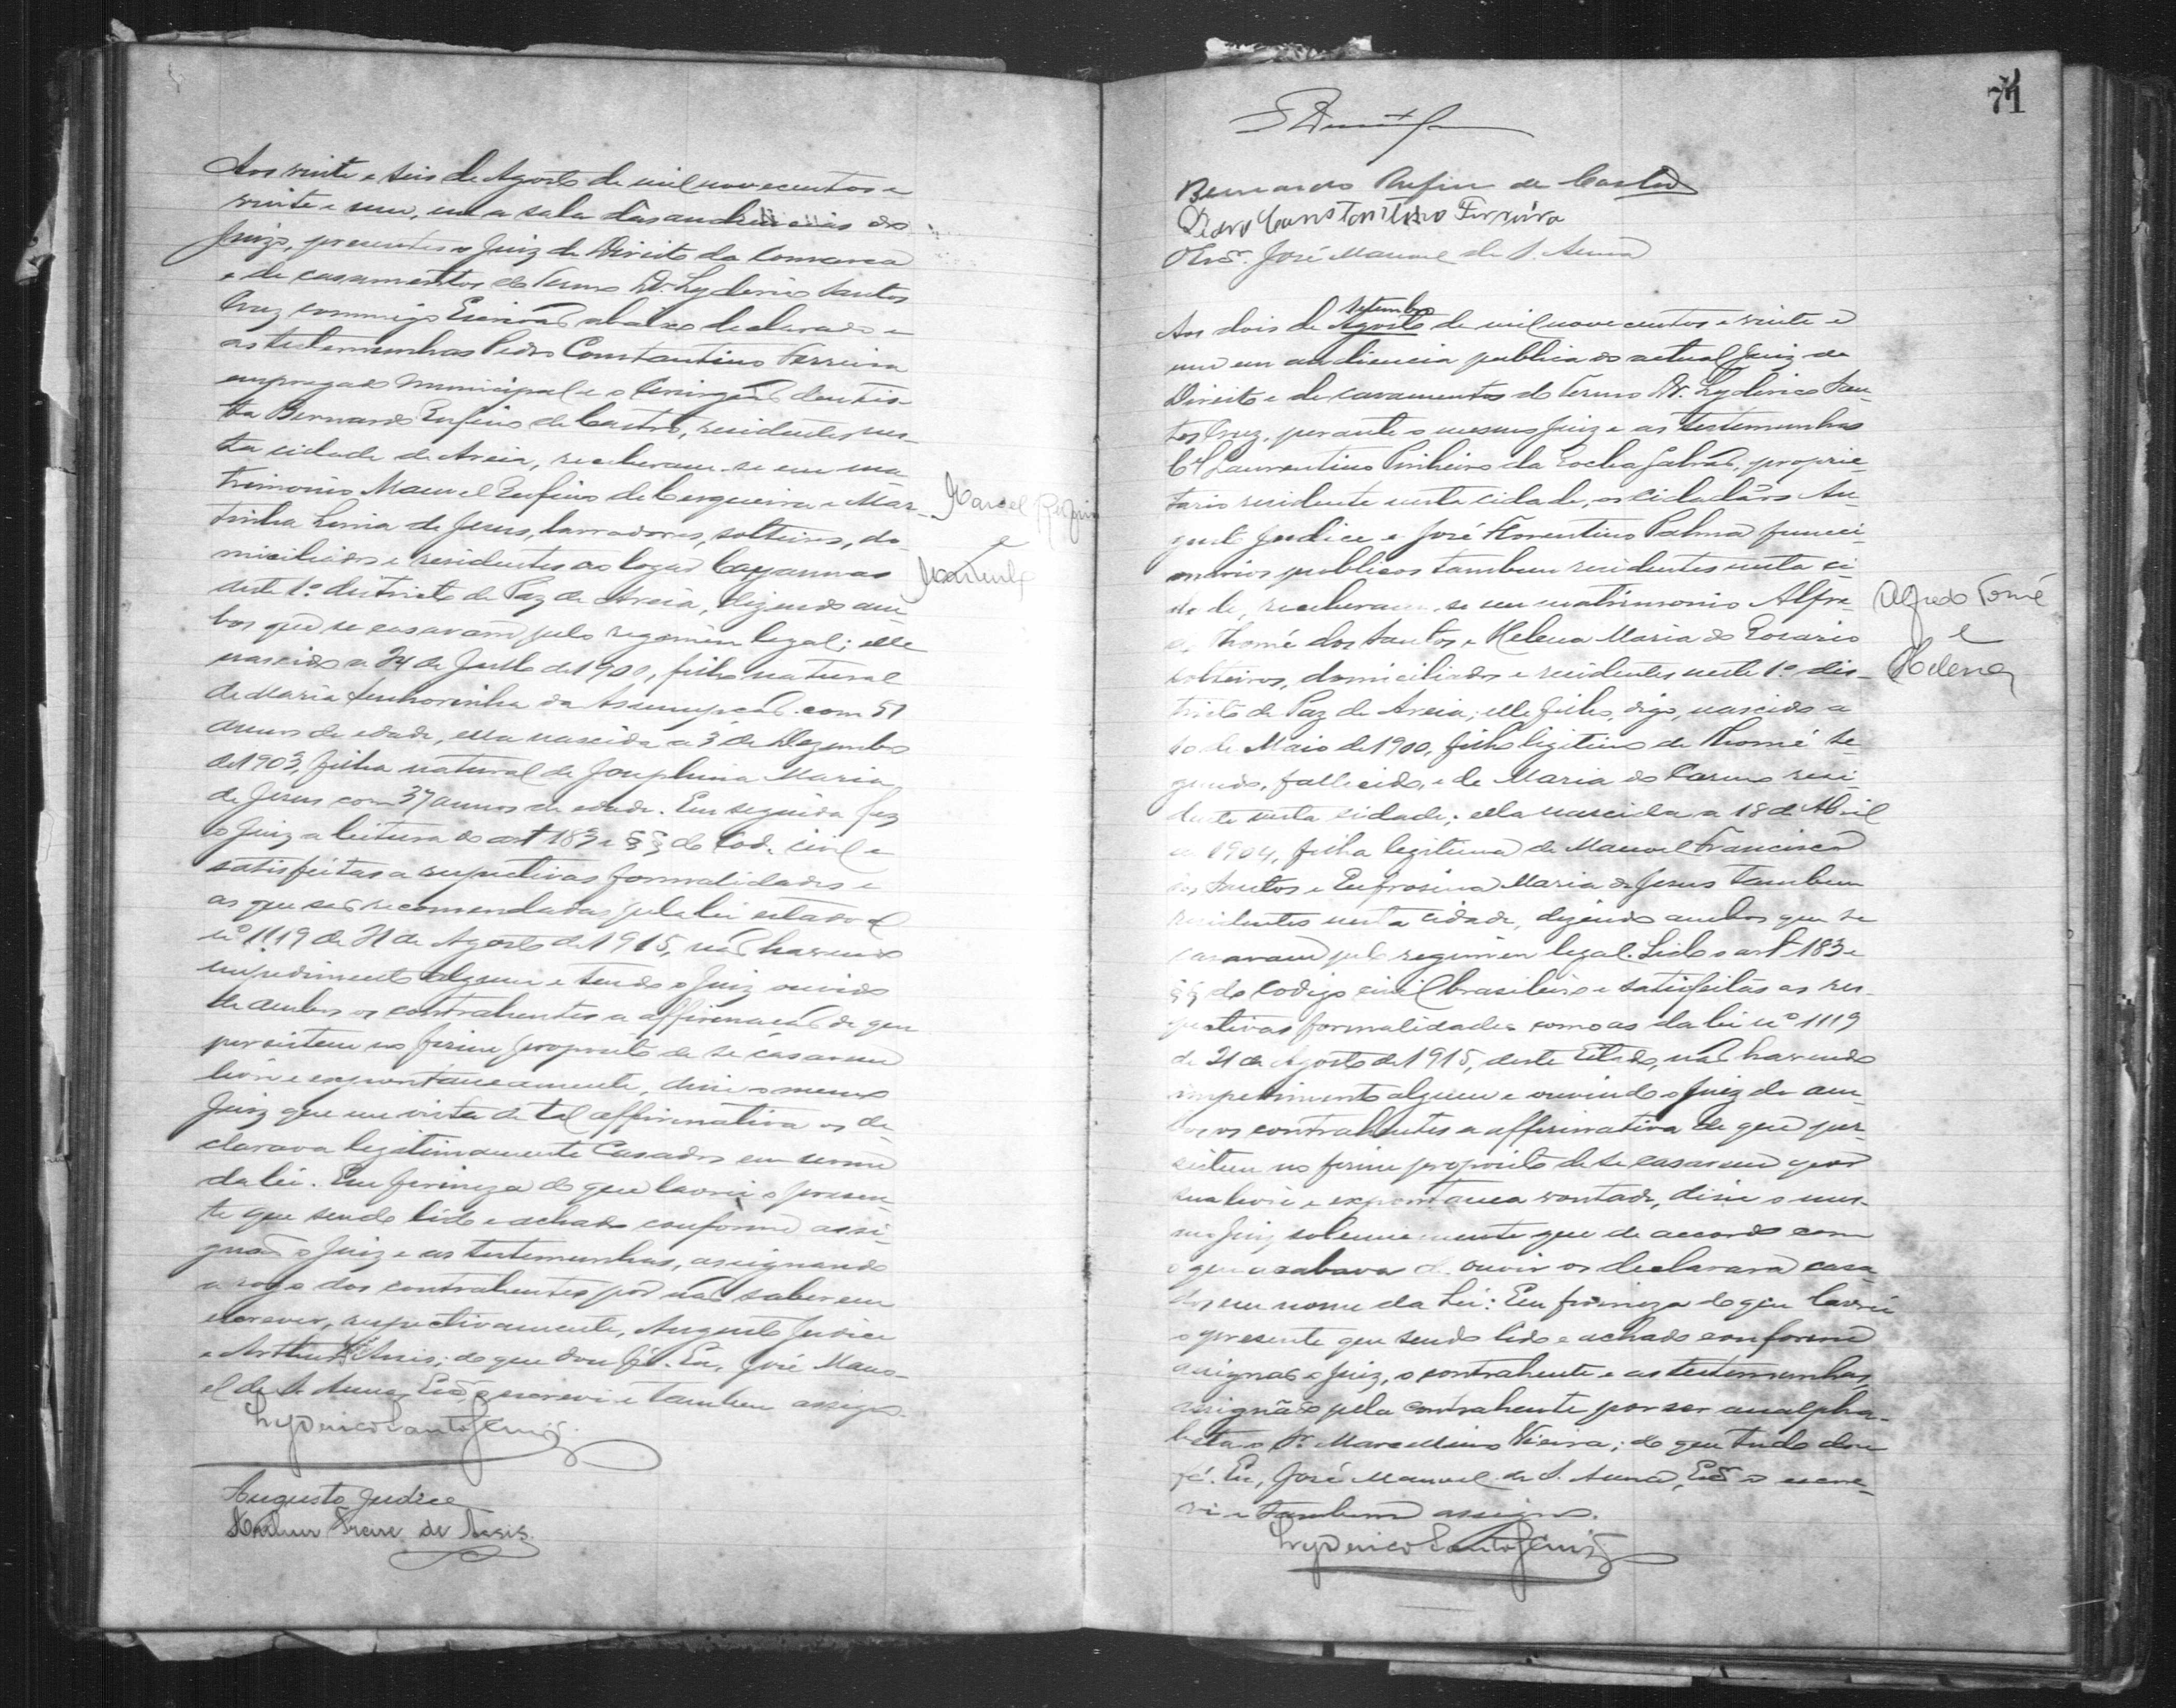 Aos vinte e seis de Agosto de mil novecentos e
vinte e um, em a sala das audiencias do
Juizo, presentes o Juiz de Direito da Comarca
e de casamentos do Termo Dr. Lyderico Santos
Cruz commigo Escrivão abaixo declarado e
as testemunhas Pedro Constantino Ferreira
empregado Municipal e o Cirurgião dentis-
ta Bernardo Rufino de Castro, residentes nes-
ta cidade de Areia, receberam-se em ma-
trimonio Manoel Rufino de Cerqueira e Mar-
tinha Lima de Jesus, lavradores, solteiros, do-
miciliados e residentes ao logar
deste 1º districto de Paz de Areia, dizendo am-
bos que se casavam pelo regimen legal; elle
nascido a 24 de de 1900, filho natural
de Maria Senhorinha da Assumpção com 51
annos de edade, ella nascida a 3 de Dezembro
de 1903, filha natural de Josephina Maria
de Jesus com 37 annos de edade. Em seguida fez
o Juiz a leitura do art 183 e §§ do Cod. civil e
satisfeitas as respectivas formalidades e
as que são recomendadas pela lei estadoal
nº 1119 de 21 de Agosto de 1915, não havendo
impedimento algum e tendo o Juiz ouvido
de ambos os contrahentes a affirmação de que
persistem no firme proposito de se casarem
livre e expontaneamente, disse o mesmo
Juiz que em vista de tal affirmativa os de-
clarava legitimamente Casados em nome
da lei. Em firmeza do que lavrei o presen-
te que sendo lido e achado conforme assi-
gnão o Juiz e as testemunhas, assignando
a rogo dos contrahentes por não saberem
escrever, respectivamente, Augusto Judice
e Arthur Assis; do que dou fé. Eu, José Mano-
el de S. Anna, Escrivão, o escrevi e tambem assigno.
Lyderico Santos Cruz
Augusto Judice
Arthur Freire de Assis.
Manoel Rufino
e
Martinha
71
Bernardo Rufino de Castro
Pedro Constantino Ferreira
O Escrm. José Manuel de S. Anna
Setembro
Aos dois de Agosto de mil novecentos e vinte e
um em audiencia publica do actual Juiz de
Direito e de casamentos do Termo Dr. Lyderico San-
tos Cruz, perante o mesmo Juiz e as testemunhas
Cel Laurentino Pinheiro da Rocha Galvão, proprie-
tario residente nesta cidade, os cidadãos Au-
gusto Judice e José Florentino Palma funcci-
onarios publicos tambem residentes nesta ci-
dade, receberam-se em matrimonio Alfre-
do Thomé dos Santos e Helena Maria do Rosario
solteiros, domiciliados e residentes neste 1º dis-
tricto de Paz de Areia; elle filho, digo, nascido a
10 de Maio de 1900, filho legitimo de Thomé Se-
gundo, fallecido, e de Maria do Carmo resi-
dente nesta cidade; ella nascida a 18 de Abril
de 1904, filha legitima de Manoel Francisco
dos Santos e Eufrosina Maria de Jesus tambem
residentes nesta cidade, dizendo ambos que se
casavam pelo regimen legal. Lido o art 183 e
§§ do Codigo civil brasileiro e satisfeitas as res-
pectivas formalidades como as da lei nº 1119
de 21 de Agosto de 1915, deste Estado, não havendo
impedimento algum e ouvindo o Juiz de am-
bos os contrahentes a affirmativa de que per-
sistem no firme proposito de se casarem por
sua livre e expontanea vontade, disse o mes-
mo Juiz solennemente que de accordo com
o que acabava de ouvir os declarava casa-
dos em nome da Lei: Em firmeza do que lavrei
o presente que sendo lido e achado conforme
assignão o Juiz, o contrahente e as testemunhas,
assignão pela contrahente por ser analpha-
beta o Sr. Marcellino Vieira; do que tudo dou
fé. Eu, José Manuel de S. Anna, Escm o escre-
vi e tambem assigno.
Lyderico Santos Cruz
Alfredo Tomé
e
Helena